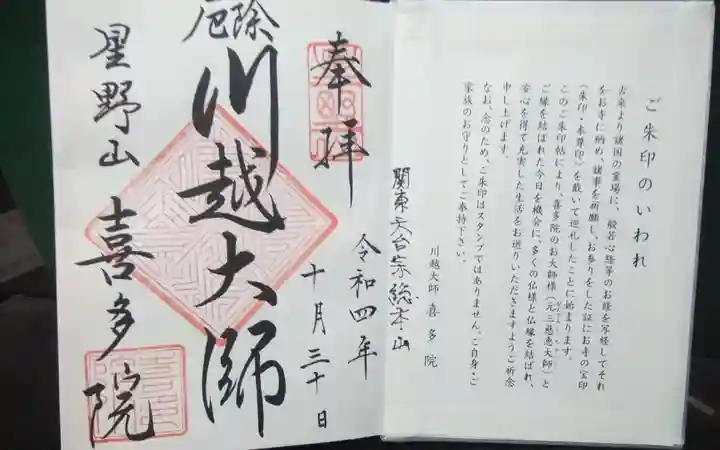 ご朱印のいわれ
古来より諸国の霊場に、般若心経等のお経を写経してそれ
をお寺に納め、諸事を祈願し、お参りをした証にお寺の宝印
（朱印・本尊印）を戴いて巡礼したことに始まります。
このご朱印帖により、喜多院のお大師様（元三慈恵大師）と
ご縁を結ばれた今日を機会に、多くの仏様と仏縁を結ばれ、
安心を得て充実した生活をお送りいただきますようご祈念
申し上げます。
なお、念のため、ご朱印はスタンプではありません。ご自身・ご
家族のお守りとしてご奉持下さい。
川越大師 喜多院
関東天台宗総本山
奉拝
令和四年
十月三十日
厄除
川越大師
星野山
喜多院